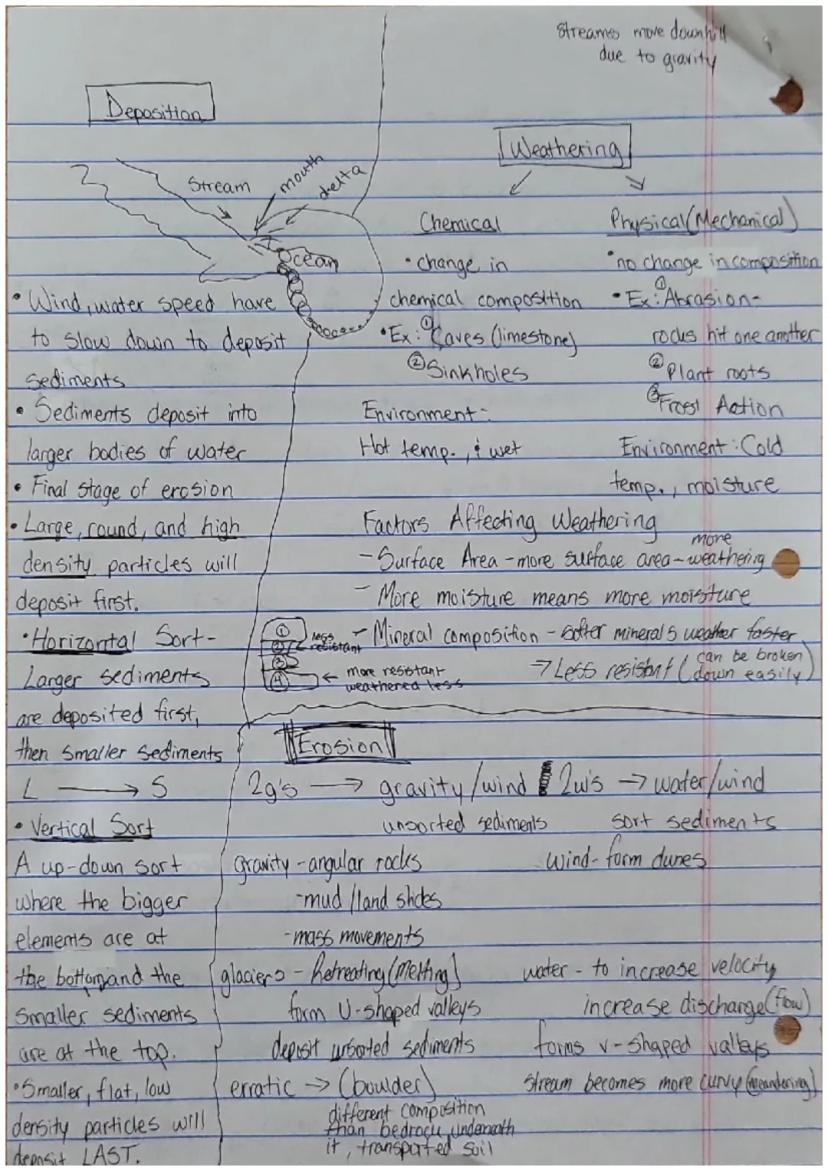 Streams move downhill
due to gravity
Deposition
Stream
mouth
delta
Ocean
• Wind, water speed have
to slow down to deposit
sediments
• Sediments deposit into
larger bodies of water
• Final stage of erosion
• Large, round, and high
density particles will
deposit first.
• Horizontal Sort-
Larger sediments
are deposited first,
then smaller sediments
L → S
• Vertical Sort
A up-down sort
where the bigger
elements are at
the bottom, and the
smaller sediments
are at the top.
• Smaller, flat, low
density particles will
deposit LAST.
Weathering
Chemical
• change in
chemical composition
• Ex: ① Caves (limestone)
② Sinkholes
Environment:
Hot temp., & wet
Physical (Mechanical)
• no change in composition
• Ex: ① Abrasion-
rocks hit one another
② Plant roots
③ Frost Action
Environment: Cold
temp., moisture
Factors Affecting Weathering
- Surface Area - more surface area - more weathering
- More moisture means more moisture
- Mineral composition - softer minerals weather faster
→ Less resistant (can be broken
down easily)
①
②
③
④
less
resistant
← more resistant
weathered less
Erosion
2g's → gravity/wind
unsorted sediments
2w's → water/wind
sort sediments
gravity - angular rocks
- mud/land slides
- mass movements
wind - form dunes
glaciers - Retreating (Melting)
form U-shaped valleys
deposit unsorted sediments
erratic → (boulder)
different composition
than bedrock underneath
it, transported soil
water - to increase velocity
increase discharge (flow)
forms v-shaped valleys
stream becomes more curvy (meandering)